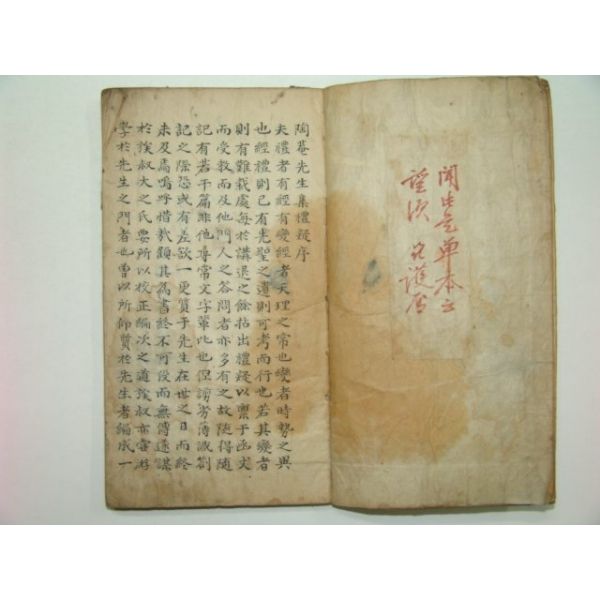 陶菴先生集禮疑序
夫禮者有經有變經者天理之常也變者時勢之異
也經禮則已有先聖之遺則可考而行也若其變者
則有難裁處每於講退之餘拈出禮疑以稟于函丈
而受教而及他門人之答問者亦多有之故隨得隨
記有若干篇非他尋常文字輩比也但謏劣薄識劄
記之際恐或有差欲一更質于先生在世之日而終
未及焉嗚呼惜哉顧其爲書終不可役而無傳遂謀
於族叔大之氏要所以校正編次之道族叔亦嘗游
學於先生之門者也曾以所仰質於先生者編成一
單本